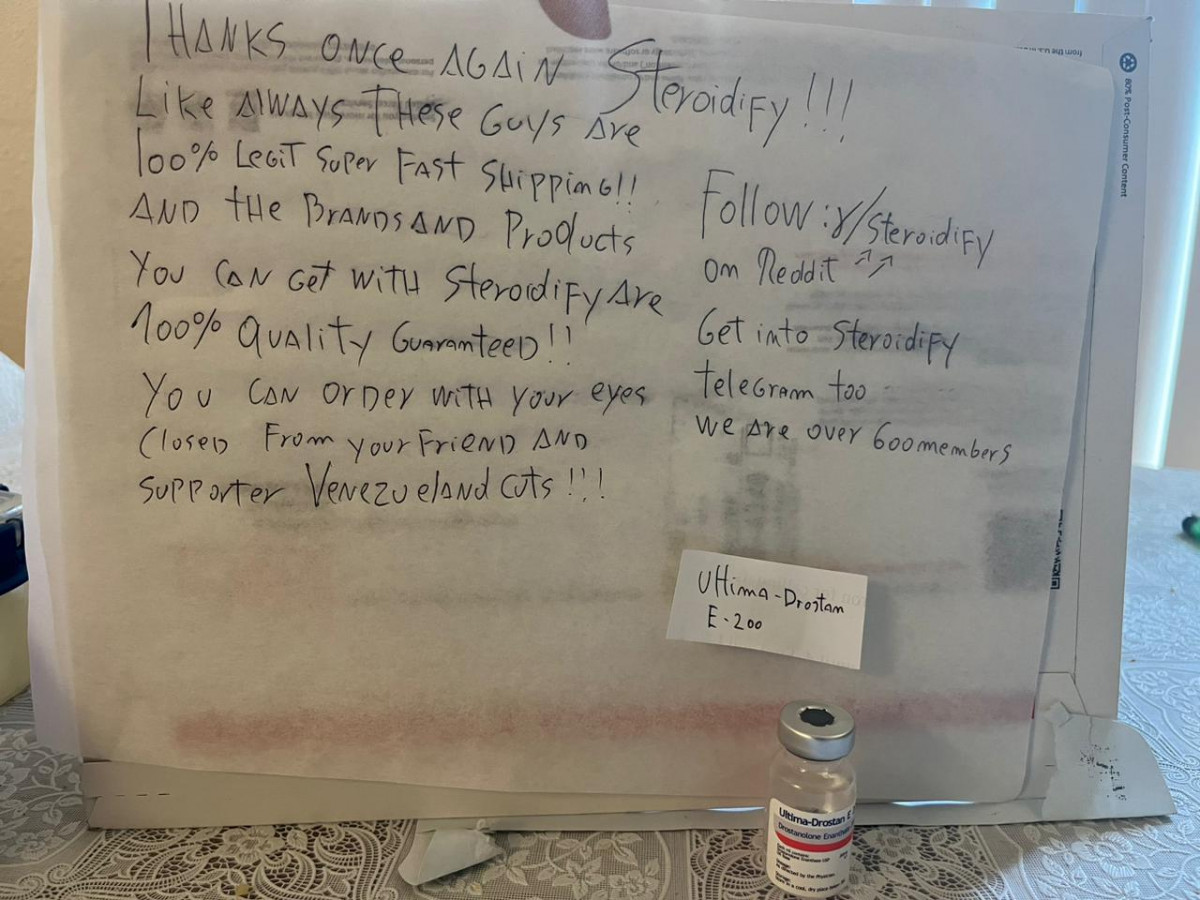 THANKS ONCE AGAIN Steroidify!!!
Like Always These Guys Are
100% Legit Super Fast Shipping!!
AND the Brands AND Products
You can Get with Steroidify Are
100% Quality Guaranteed!!
You can order with your eyes
Closed From your Friend AND
supporter Venezueland cuts!!!
Follow: r/steroidify
on Reddit
Get into Steroidify
telegram too
we are over 600 members
Ultima-Drostan
E-200
Ultima-Drostan E
Drostanolone Enanthate
80% Post-Consumer Content